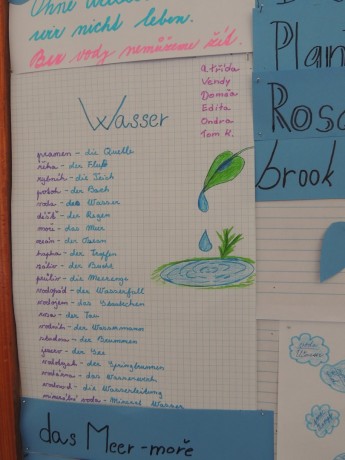 Ohne
wir nicht leben.
Bez vody nemůžeme žít.
Vendy
Domča
Edita
Ondra
Tom K.
Wasser
pramen - die Quelle
řeka - der Fluß
rybník - der Teich
potok - der Bach
voda - das Wasser
déšť - der Regen
moře - das Meer
oceán - der Ozean
kapka - der Tropfen
záliv - die Bucht
průliv - die Meerenge
vodopád - der Wasserfall
vodojem - das
rosa - der Tau
vodník - der Wassermann
studna - der Brunnen
jezero - der See
vodotrysk - der Springbrunnen
vodárna - das Wasserwerk
vodovod - die Wasserleitung
minerální voda - Mineral Wasser
das Meer - moře
Plan
Rosa
brook